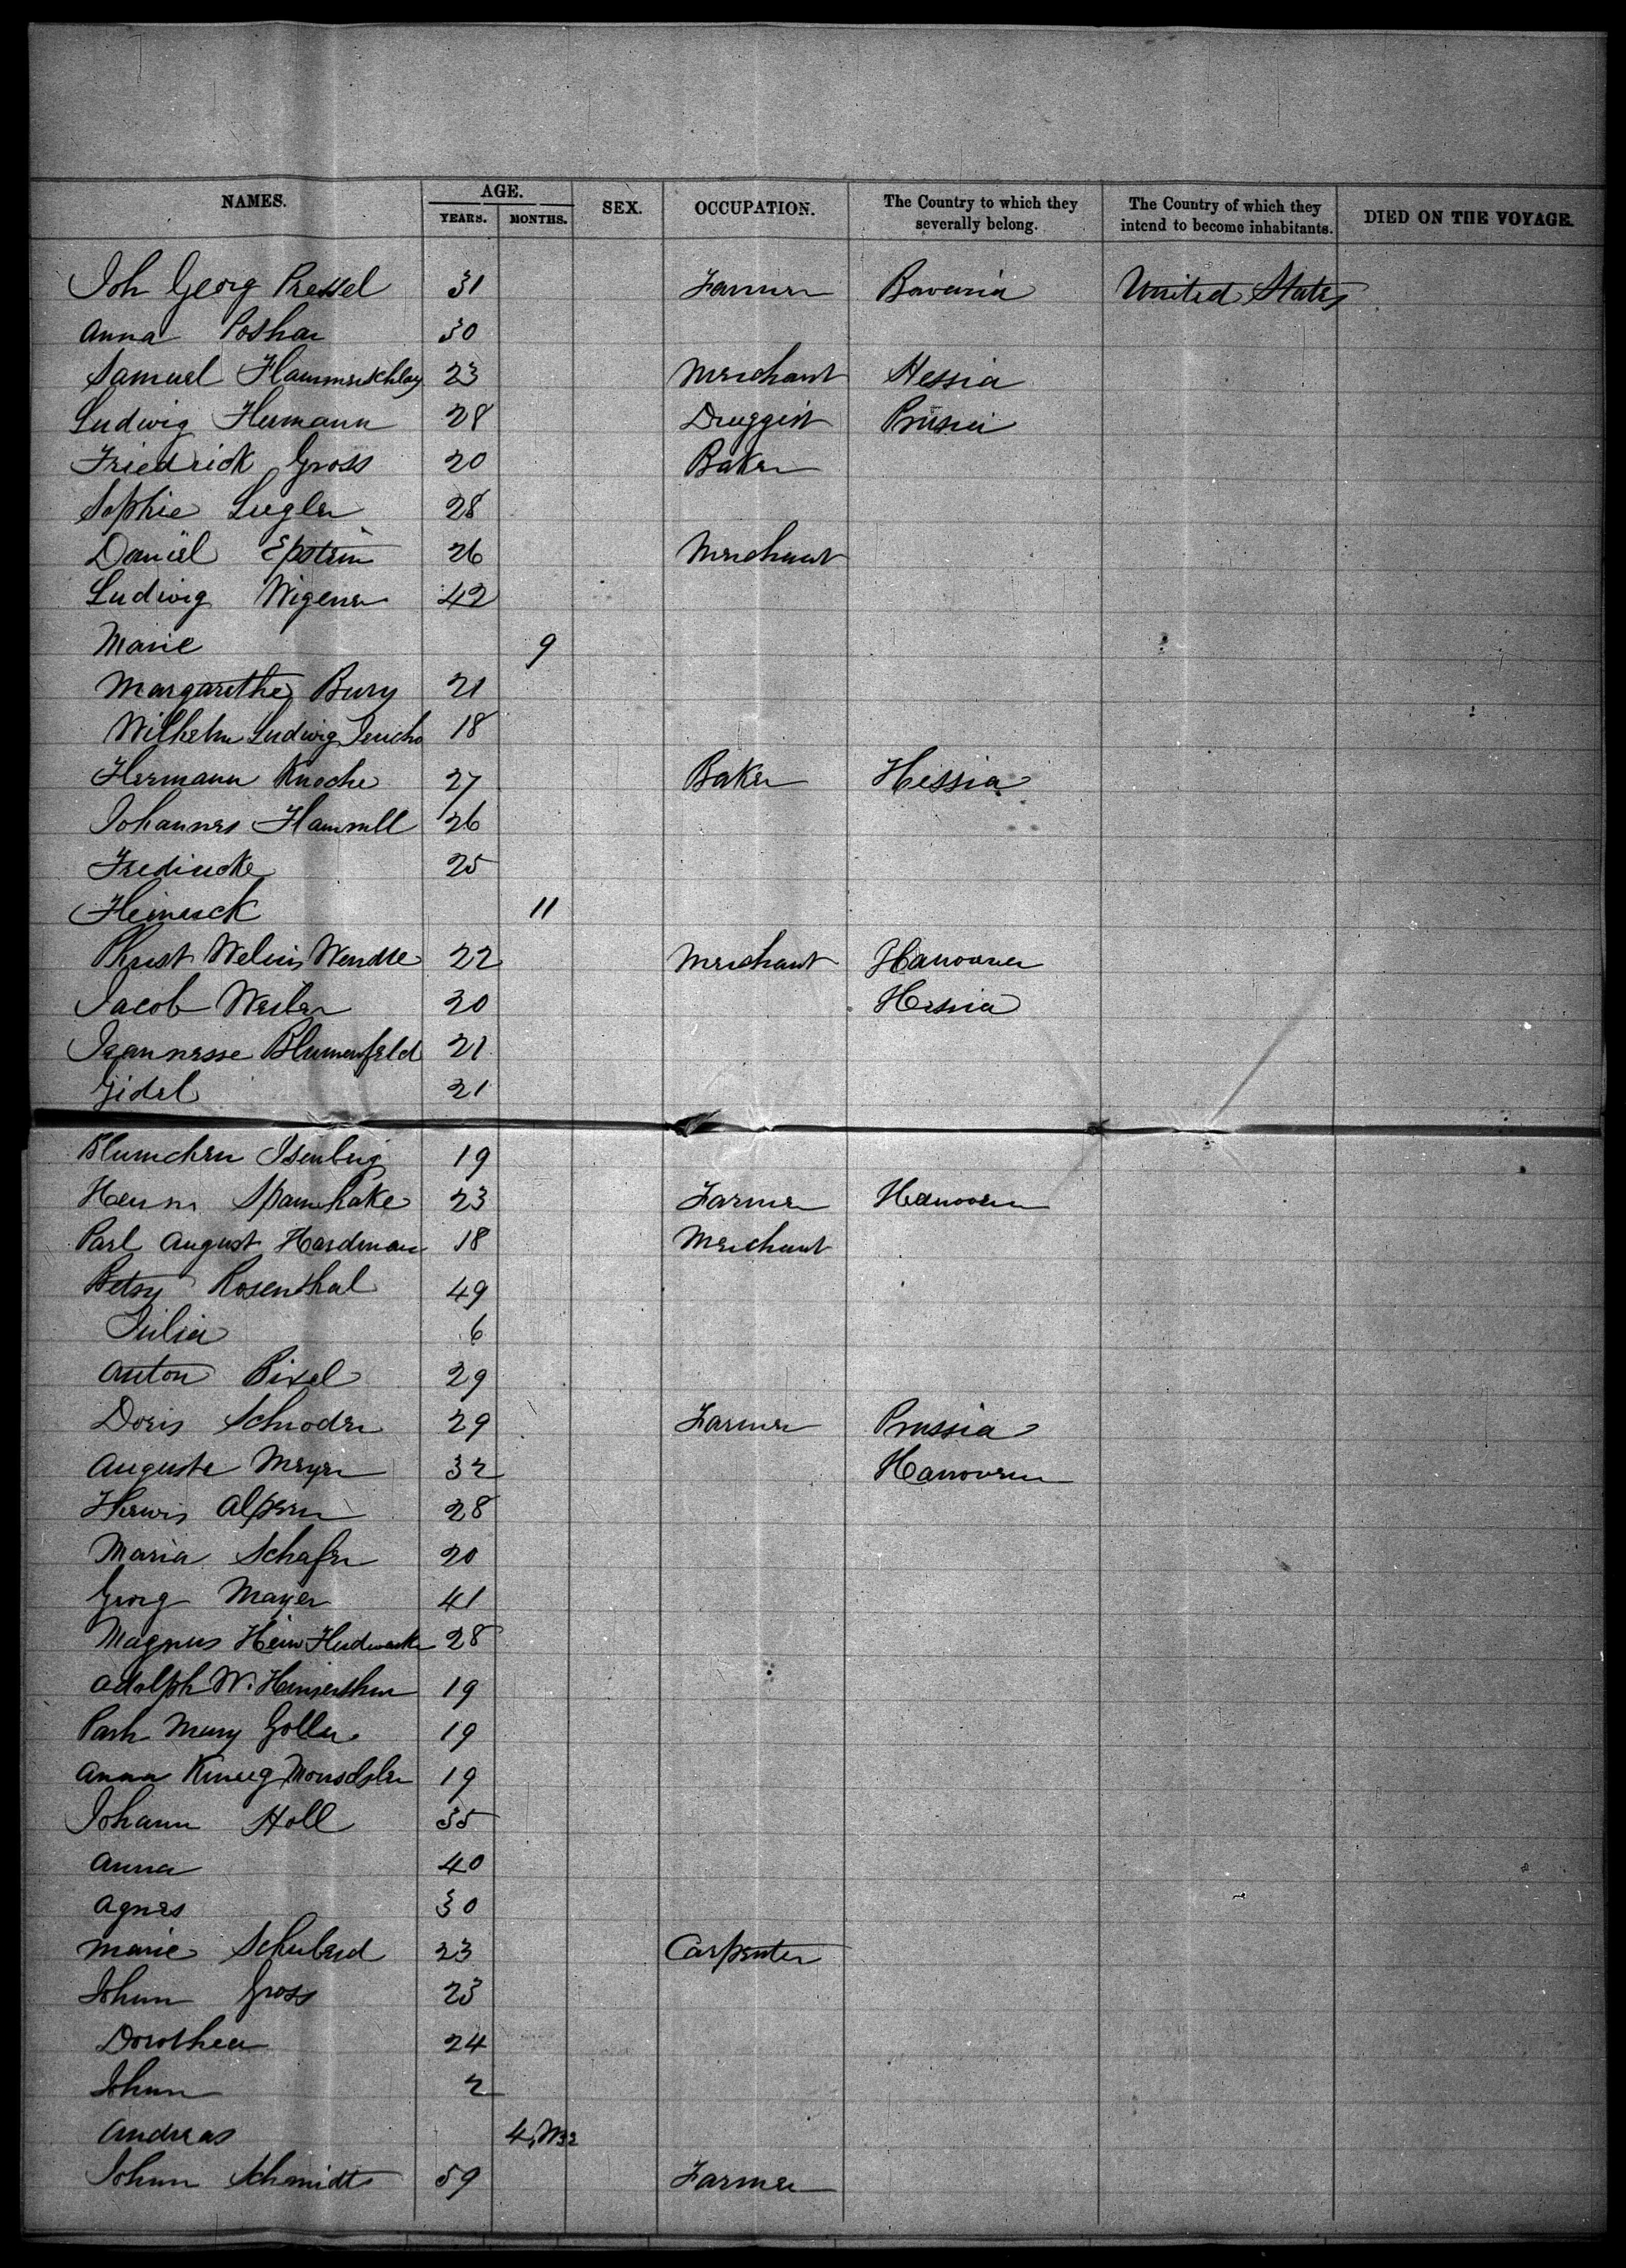 NAMES. AGE. SEX. OCCUPATION. The Country to which they severally belong. The Country of which they intend to become inhabitants. DIED ON THE VOYAGE.
YEARS. MONTHS.
Joh Georg Pressel 31 Farmer Bavaria United States
Anna 30
Samuel Hammerschlag 23 Merchant Hessia
Ludwig Hermann 28 Druggist Prussia
Friedrick Gross 20 Baker
Sophie 28
Daniel Epstein 26 Merchant
Ludwig Wigener 42
Marie 9
Margarethe Bury 21
Wilhelm Ludwig 18
Hermann Knoche 27 Baker Hessia
Johannes Hammell 26
25
Heinrick 11
Wendte 22 Merchant Hanover
Jacob 20 Hessia
Jeannesse Blumenfeld 21
Gidel 21
Blumchen Isenberg 19
23 Farmer Hanover
Carl August Hardman 18 Merchant
Betsy Rosenthal 49
Julia 6
Anton Bixel 29
Doris Schroder 29 Farmer Prussia
Auguste Meyer 32 Hanover
28
Maria Schafer 20
Georg Mayer 41
Magnus Hein 28
Adolph W. 19
Mary Goller 19
Anna 19
Johann Holl 35
Anna 40
Agnes 30
Marie Schuberd 23 Carpenter
Johann Gross 23
Dorothea 24
Johann 2
Andreas 4
Johann Schmidt 59 Farmer